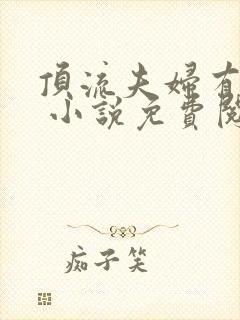 頂流夫婦有
小説免費閱
痴子笑